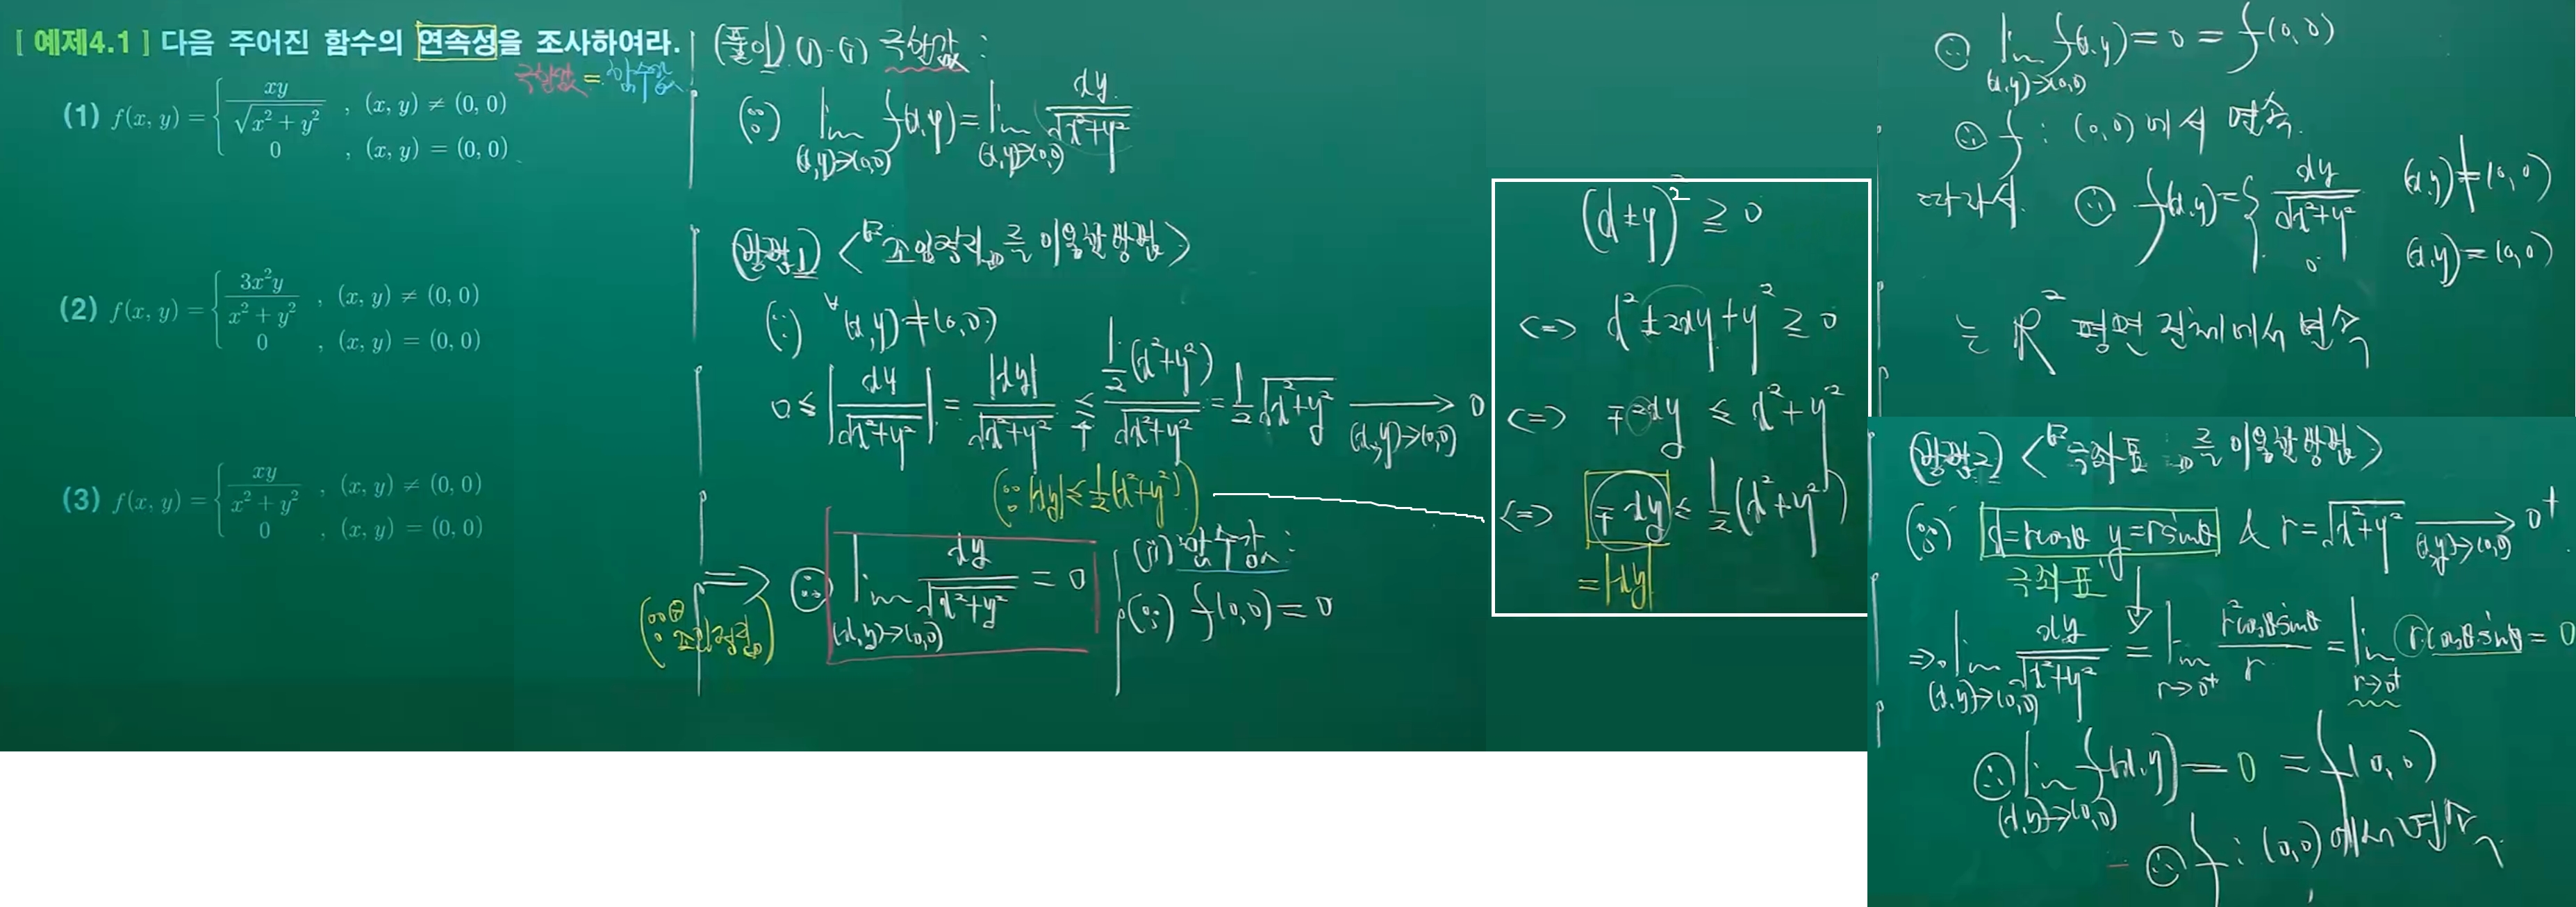 [ 예제4.1 ] 다음 주어진 함수의 연속성을 조사하여라.
극한값 = 함수값
(1) f(x, y) = { xy / √(x² + y²) , (x, y) ≠ (0, 0)
0 , (x, y) = (0, 0)
(2) f(x, y) = { 3x²y / (x² + y²) , (x, y) ≠ (0, 0)
0 , (x, y) = (0, 0)
(3) f(x, y) = { xy / (x² + y²) , (x, y) ≠ (0, 0)
0 , (x, y) = (0, 0)
(풀이) (1)-(i) 극한값 :
(∵) lim (x,y)→(0,0) f(x,y) = lim (x,y)→(0,0) xy / √(x²+y²)
(방법1) < 조임정리를 이용한 방법 >
(∵) ∀(x,y) ≠ (0,0)
0 ≤ | xy / √(x²+y²) | = |xy| / √(x²+y²) ≤ ½(x²+y²) / √(x²+y²) = ½ √(x²+y²) → 0
(x,y)→(0,0)
(∵ |xy| ≤ ½(x²+y²))
⇒ ∴ lim (x,y)→(0,0) xy / √(x²+y²) = 0
(∵ 조임정리)
(ii) 함수값 :
(∵) f(0,0) = 0
(x±y)² ≥ 0
<=> x² ± 2xy + y² ≥ 0
<=> ∓2xy ≤ x² + y²
<=> ∓xy ≤ ½(x²+y²)
= |xy|
∴ lim (x,y)→(0,0) f(x,y) = 0 = f(0,0)
∴ f : (0,0)에서 연속.
따라서 ∴ f(x,y) = { xy / √(x²+y²) (x,y) ≠ (0,0)
0 (x,y) = (0,0)
는 R² 평면 전체에서 연속
(방법2) < 극좌표를 이용한 방법 >
(∵) x=rcosθ y=rsinθ & r = √(x²+y²) → 0⁺
(x,y)→(0,0)
극좌표
⇒ lim (x,y)→(0,0) xy / √(x²+y²) = lim r→0⁺ r²cosθsinθ / r = lim r→0⁺ rcosθsinθ = 0
∴ lim (x,y)→(0,0) f(x,y) = 0 = f(0,0)
∴ f : (0,0)에서 연속